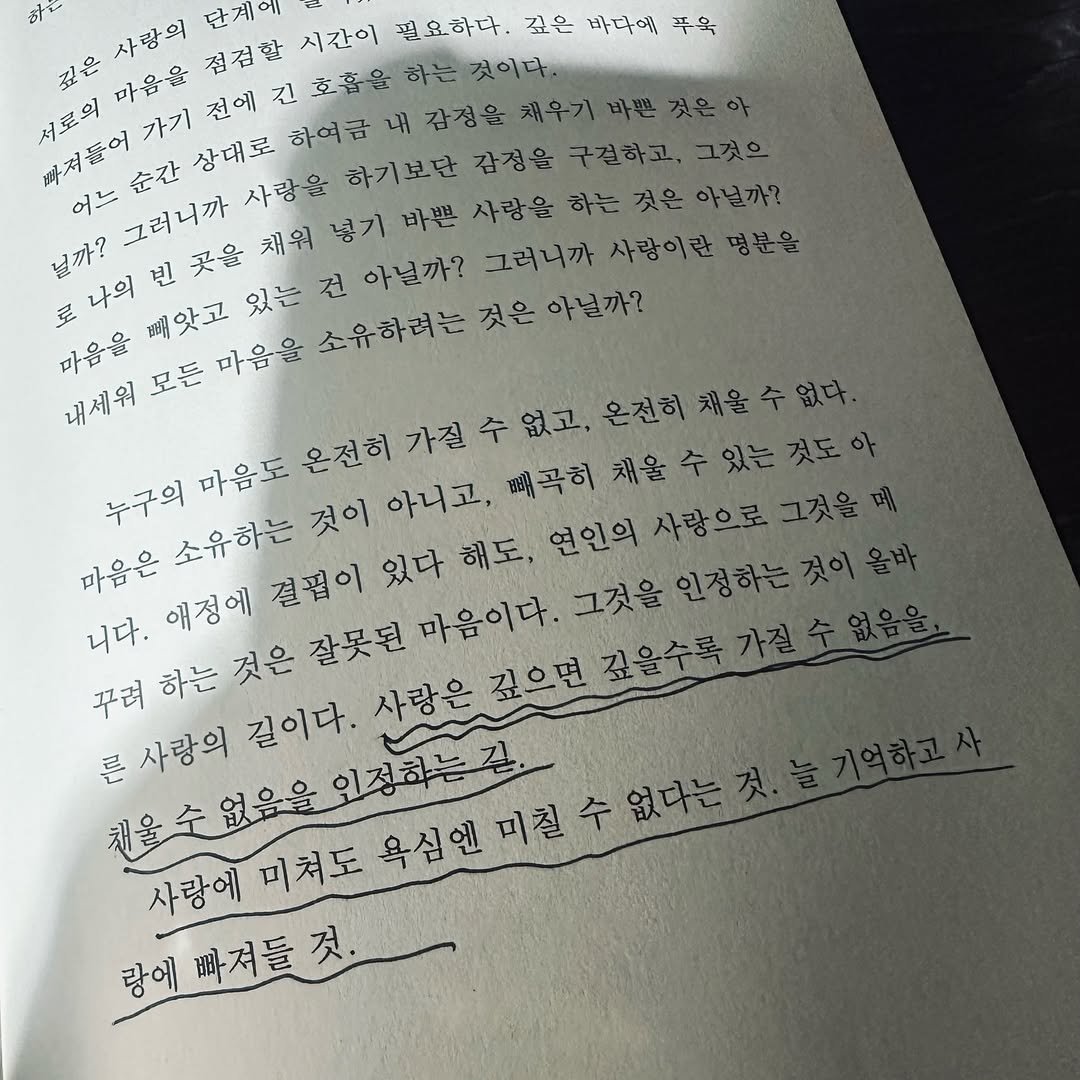 하는
깊은 사랑의 단계에
서로의 마음을 점검할 시간이 필요하다. 깊은 바다에 푸욱
빠져들어 가기 전에 긴 호흡을 하는 것이다.
어느 순간 상대로 하여금 내 감정을 채우기 바쁜 것은 아
닐까? 그러니까 사랑을 하기보단 감정을 구걸하고, 그것으
로 나의 빈 곳을 채워 넣기 바쁜 사랑을 하는 것은 아닐까?
마음을 빼앗고 있는 건 아닐까? 그러니까 사랑이란 명분을
내세워 모든 마음을 소유하려는 것은 아닐까?
누구의 마음도 온전히 가질 수 없고, 온전히 채울 수 없다.
마음은 소유하는 것이 아니고, 빼곡히 채울 수 있는 것도 아
니다. 애정에 결핍이 있다 해도, 연인의 사랑으로 그것을 메
꾸려 하는 것은 잘못된 마음이다. 그것을 인정하는 것이 올바
른 사랑의 길이다. 사랑은 깊으면 깊을수록 가질 수 없음을,
채울 수 없음을 인정하는 길.
사랑에 미쳐도 욕심엔 미칠 수 없다는 것. 늘 기억하고 사
랑에 빠져들 것.